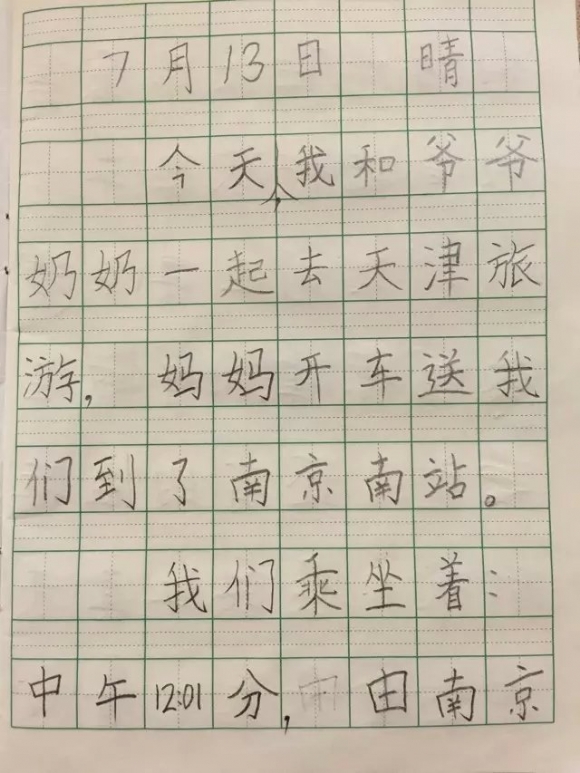 7月13日 晴
今天,我和爷爷
奶奶一起去天津旅
游,妈妈开车送我
们到了南京南站。
我们乘坐着:
中午12:01分,由南京